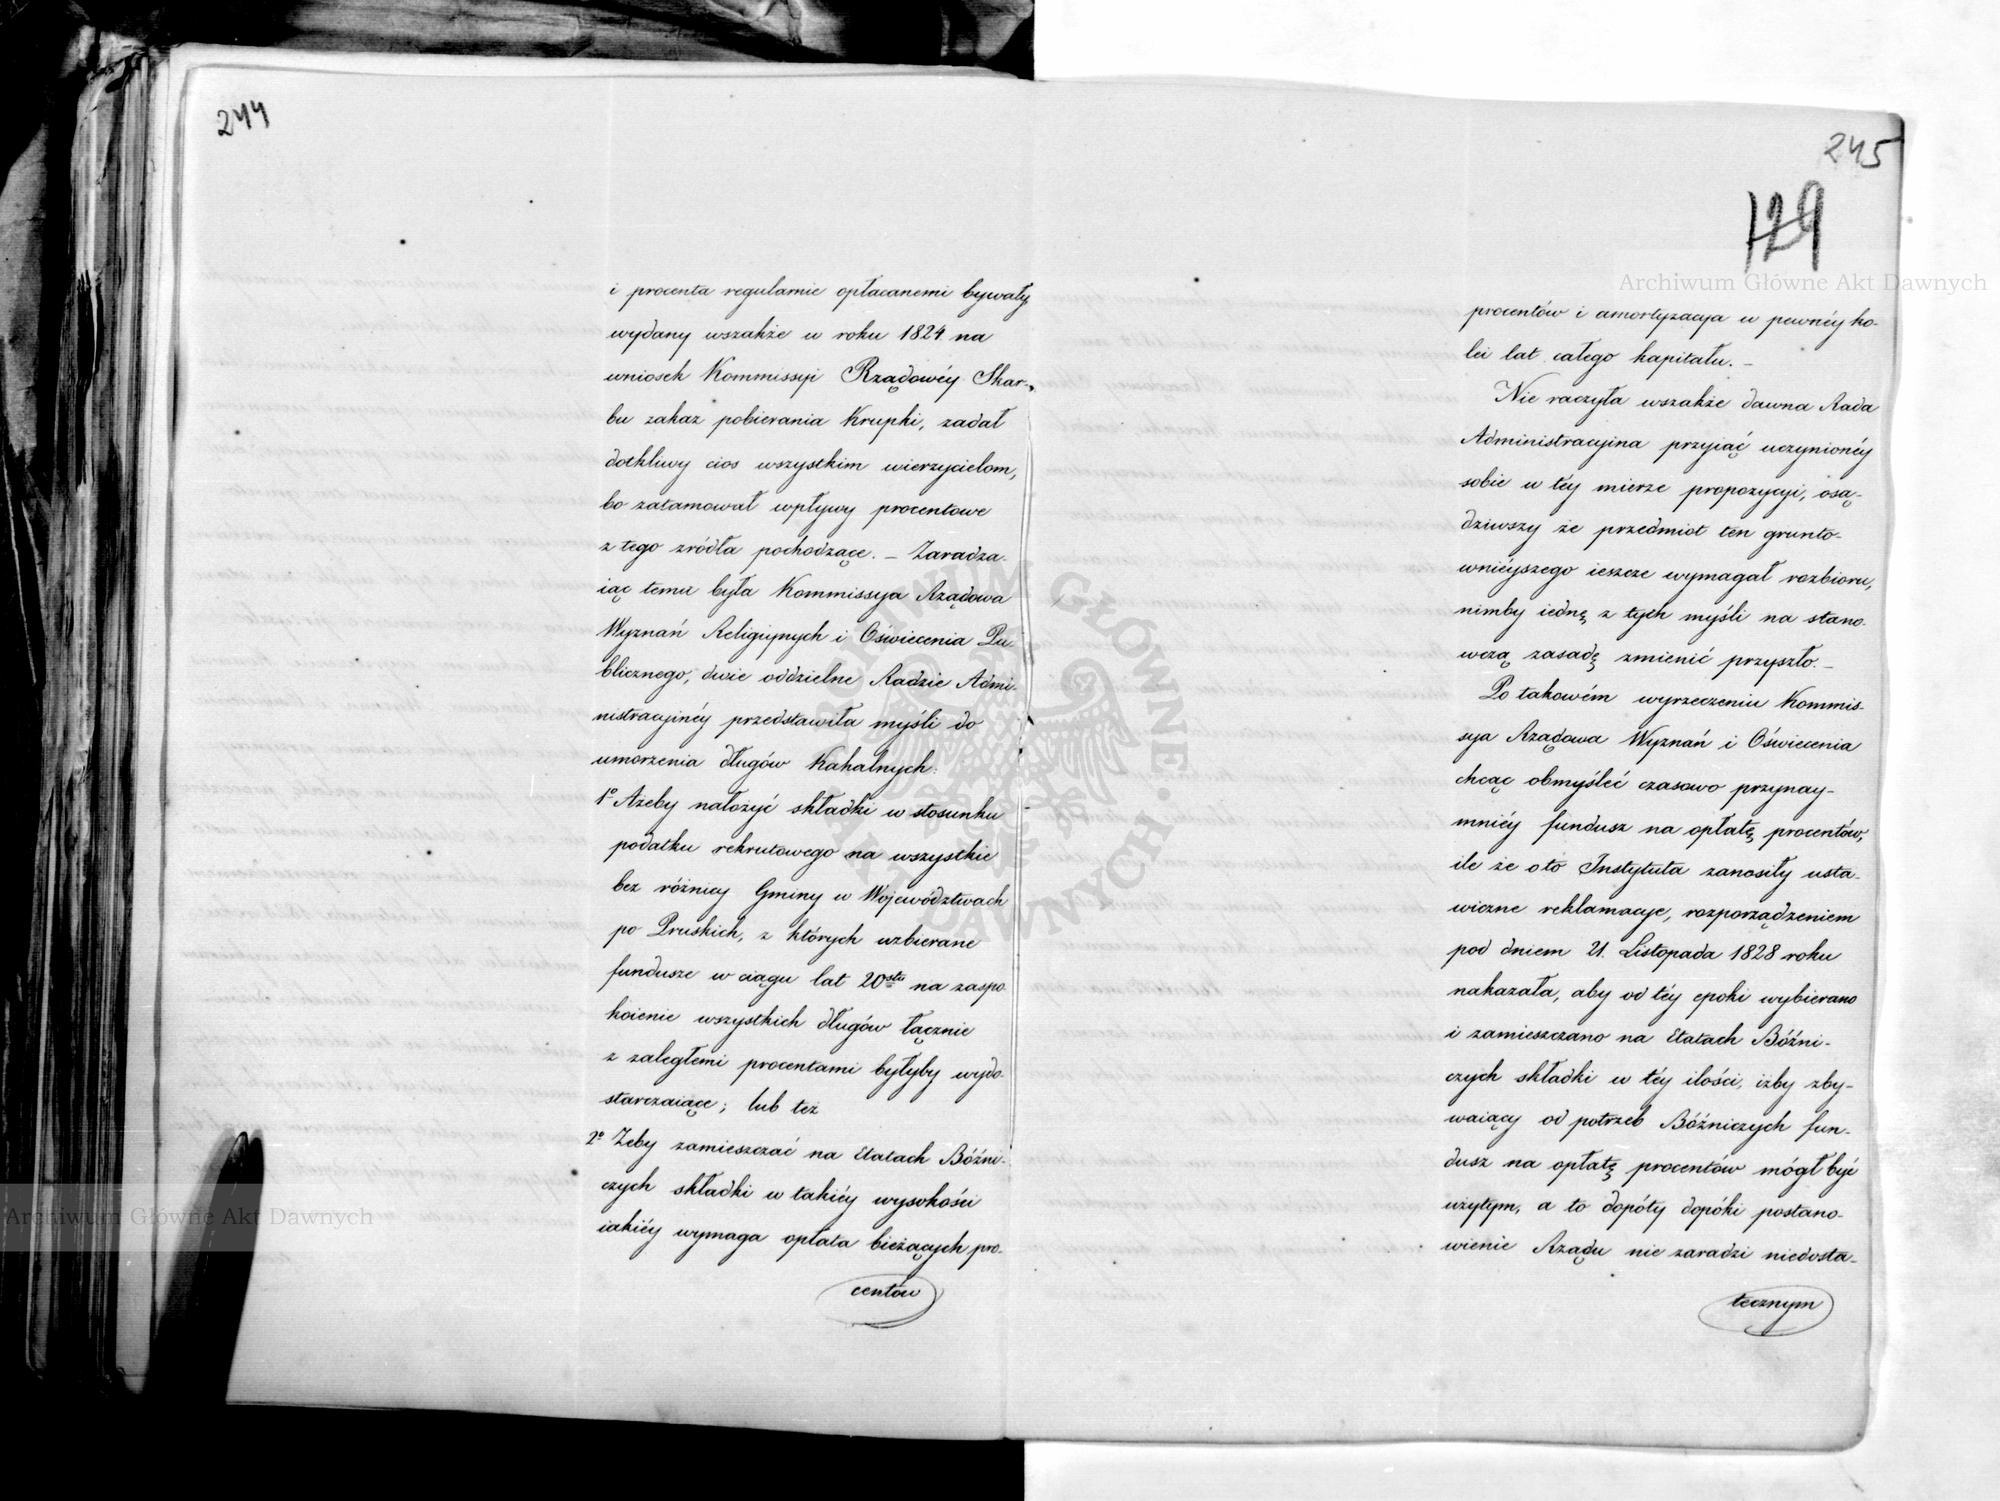 244
i procenta regularnie opłacanemi bywały,
wydany wszakże w roku 1824 na
wniosek Kommissyi Rządowéy Skar-
bu zakaz pobierania Krupki, zadał
dotkliwy cios wszystkim wierzycielom,
bo zatamował wpływy procentowe
z tego zródła pochodzące. – Zaradza-
iąc temu była Kommissya Rządowa
Wyznań Religiynych i Oświecenia Pu-
blicznego, dwie oddzielne Radzie Admi-
nistracyinéy przedstawiła myśli do
umorzenia długów Kahalnych:
1º Ażeby nałożyć składki w stosunku
podatku rekrutowego na wszystkie
bez różnicy Gminy w Województwach
po Pruskich, z których uzbierane
fundusze w ciągu lat 20stu na zaspo-
koienie wszystkich długów łącznie
z zaległemi procentami byłyby wydo-
starczaiące; lub też
2º Żeby zamieszczać na Etatach Bóźni-
czych składki w takiéy wysokości
iakiéy wymaga opłata bieżących pro-
centów
245
129
procentów i amortyzacya w pewnéy ko-
lei lat całego kapitału. –
Nie raczyła wszakże dawna Rada
Administracyina przyiąć uczynionéy
sobie w téy mierze propozycyi, osą-
dziwszy że przedmiot ten grunto-
wniéyszego ieszcze wymagał rozbioru,
nimby iednę z tych myśli na stano-
wczą zasadę zmienić przyszło. –
Po takowém wyrzeczeniu Kommis-
sya Rządowa Wyznań i Oświecenia
chcąc obmyśleć czasowo przynay-
mniéy fundusz na opłatę procentów,
ile że oto Instytuta zanosiły usta-
wiczne reklamacye, rozporządzeniem
pod dniem 21. Listopada 1828 roku
nakazała, aby od téy epoki wybierano
i zamieszczano na Etatach Bóźni-
czych składki w téy ilości, iżby zby-
waiący od potrzeb Bóźniczych fun-
dusz na opłatę procentów mógł być
użytym, a to dopóty dopóki postano-
wienie Rządu nie zaradzi niedosta-
tecznym
Archiwum Główne Akt Dawnych
Archiwum Główne Akt Dawnych
ARCHIWUM GŁÓWNE AKT DAWNYCH